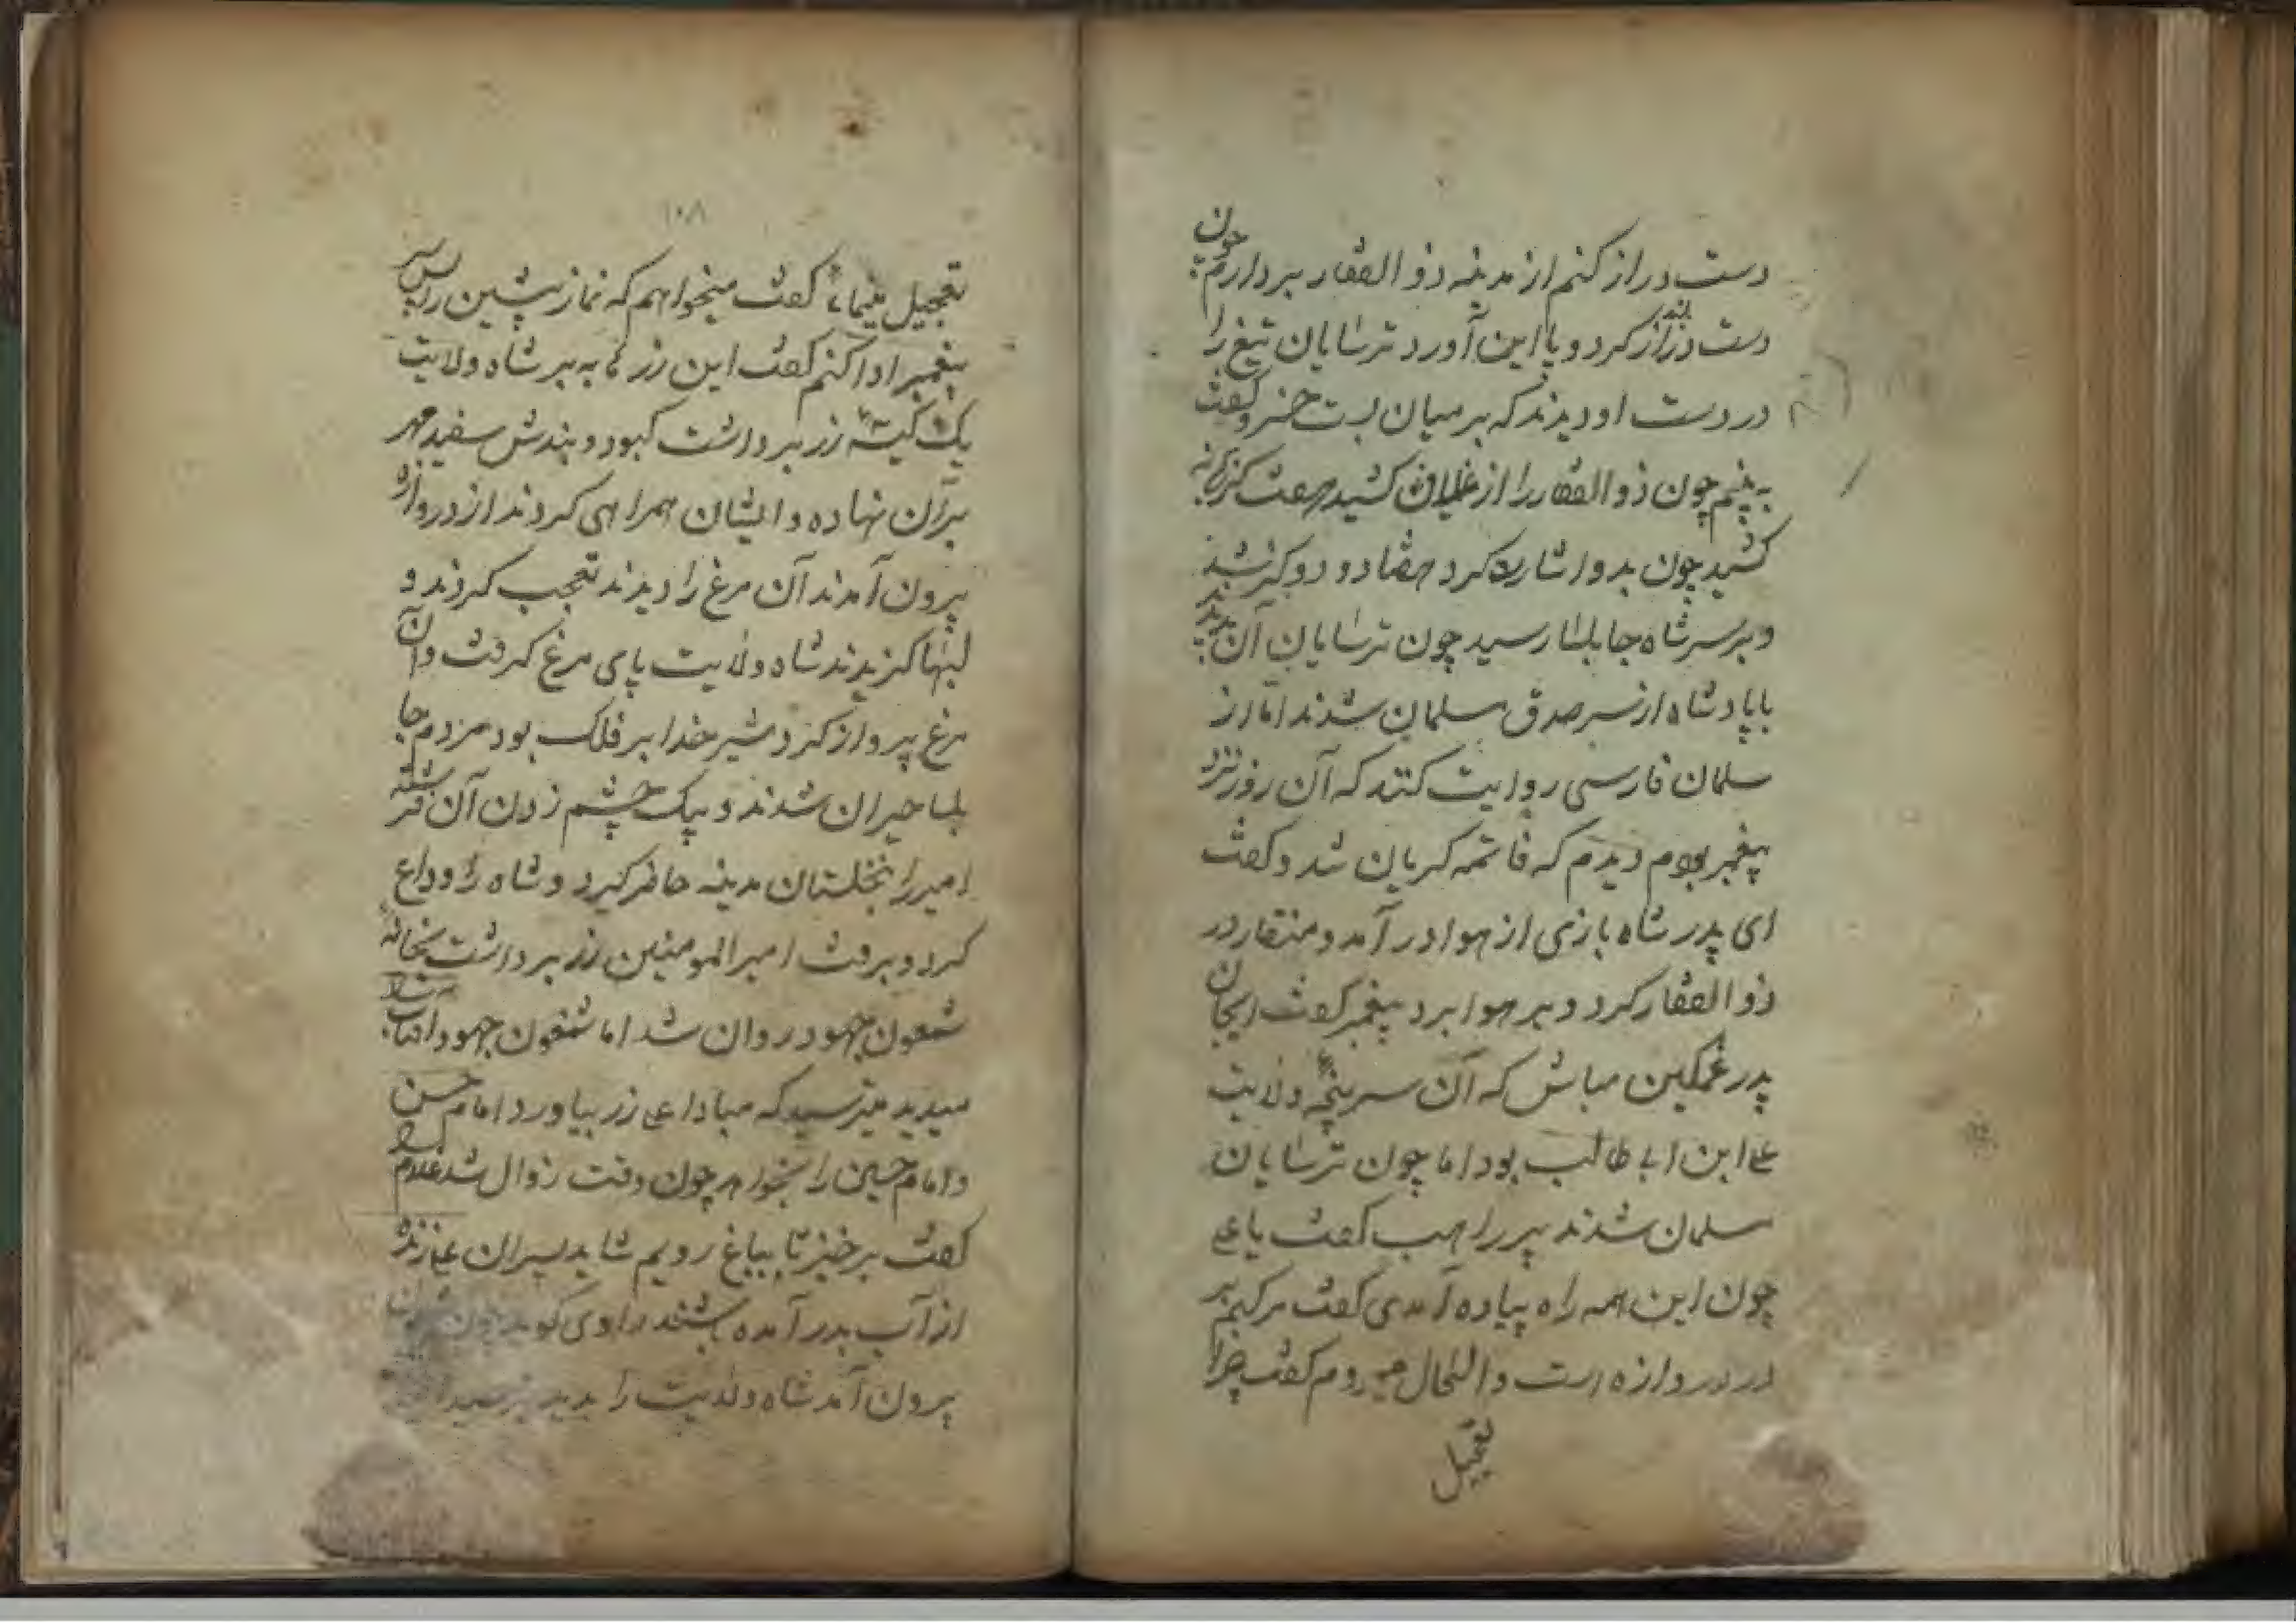 دست دراز کنم از مدینه ذوالفقار بردارم چون
دست دراز کرد و با این آورد ترسایان تیغ را
در دست او دیدند که بر میان بست خسرو گفت
به بینم چون ذوالفقار را از غلاف کشید هفت کز
کشید چون بدو اشارت کرد هفتاد و دو کز شد
و بر سر شاه جابلسا رسید چون ترسایان آن بدیدند
با پادشاه از سر صدق مسلمان شدند اما از
سلمان فارسی روایت کنند که آن روز نزد
پیغمبر بودم دیدم که فاتمه کریان شد و کفت
ای پدر شاه بازی از هوا در آمد و منقار در
ذوالفقار کرد و بر هوا برد پیغمبر کفت ایجان
پدر غمکین مباش که آن سر پنجه ولایت
علی ابن ابی طالب بود اما چون ترسایان
مسلمان شدند پیر راهب کفت یا علی
چون این همه راه پیاده آمدی کفت مرکبم بر
در دروازه است و الحال میروم کفت چرا
تعجیل
۱۰۸
تعجیل مینمائی کفت میخواهم که نماز پیشین را پس
پیغمبر ادا کنم کفت این زرها به بر شاه ولایت
یک کیسه زر برداشت کبود و بندش سفید مهر
بر آن نهاده و ایشان همراهی کردند از دروازه
بیرون آمدند آن مرغ را دیدند تعجب کردند و
لبها کزیدند شاه ولایت پای مرغ کرفت و آن
مرغ پرواز کرد شیر خدا بر فلک بود مردم جا
بلسا حیران شدند و بیک چشم زدن آن فرشته
امیر را بنخلستان مدینه حاضر کرد و شاه را وداع
کرد و برفت امیرالمومنین زر برداشت بخانه
شمعون جهود روان شد اما شمعون جهود آفتاب
میدید میترسید که مبادا علی زر بیاورد امام حسن
و امام حسین را بخواهد چون وقت زوال شد غلام
کفت برخیز تا بباغ رویم شاید پسران علی زنده
از آب بدر آمده باشند راوی کوید چون
بیرون آمد شاه ولایت را بدید ترسید